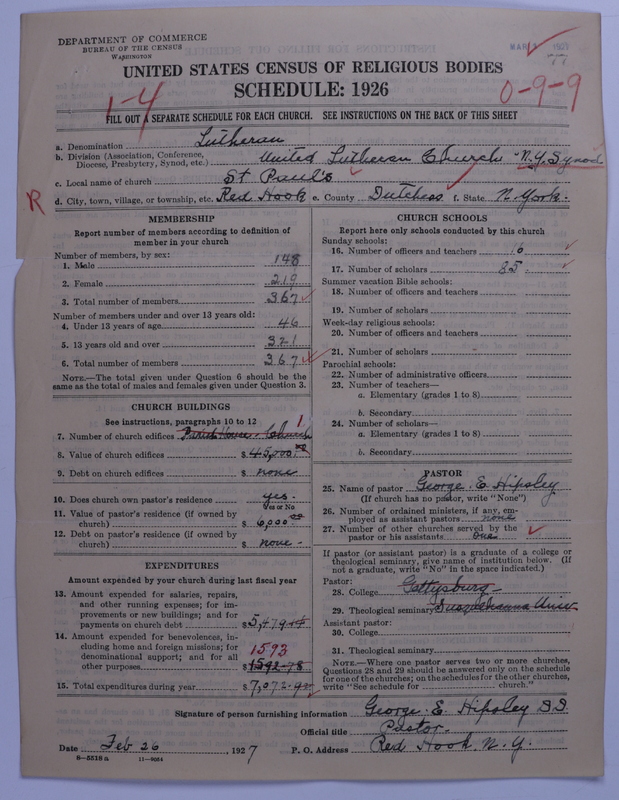 DEPARTMENT OF COMMERCE
BUREAU OF THE CENSUS
WASHINGTON
UNITED STATES CENSUS OF RELIGIOUS BODIES
SCHEDULE: 1926
1-4
0-9-9
FILL OUT A SEPARATE SCHEDULE FOR EACH CHURCH. SEE INSTRUCTIONS ON THE BACK OF THIS SHEET
a. Denomination Lutheran
b. Division (Association, Conference, Diocese, Presbytery, Synod, etc.) United Lutheran Church - N.Y. Synod
c. Local name of church St Paul's
R
d. City, town, village, or township, etc. Red Hook e. County Dutchess f. State N. York.
MEMBERSHIP
Report number of members according to definition of
member in your church
Number of members, by sex:
1. Male 148
2. Female 219
3. Total number of members 367
Number of members under and over 13 years old:
4. Under 13 years of age 46
5. 13 years old and over 321
6. Total number of members 367
NOTE.—The total given under Question 6 should be the
same as the total of males and females given under Question 3.
CHURCH BUILDINGS
See instructions, paragraphs 10 to 12
7. Number of church edifices Parish House - Church 1
8. Value of church edifices $ 45,000.00
9. Debt on church edifices $ none
10. Does church own pastor's residence yes.
Yes or No
11. Value of pastor's residence (if owned by
church) $ 6,000 00
12. Debt on pastor's residence (if owned by
church) $ none -
EXPENDITURES
Amount expended by your church during last fiscal year
13. Amount expended for salaries, repairs,
and other running expenses; for im-
provements or new buildings; and for
payments on church debt $ 5,479.14
14. Amount expended for benevolences, in-
cluding home and foreign missions; for
denominational support; and for all
other purposes 1593
$ 1592-78
15. Total expenditures during year $ 7,072-92
CHURCH SCHOOLS
Report here only schools conducted by this church
Sunday schools:
16. Number of officers and teachers 10
17. Number of scholars 85
Summer vacation Bible schools:
18. Number of officers and teachers
19. Number of scholars
Week-day religious schools:
20. Number of officers and teachers
21. Number of scholars
Parochial schools:
22. Number of administrative officers
23. Number of teachers—
a. Elementary (grades 1 to 8)
b. Secondary
24. Number of scholars—
a. Elementary (grades 1 to 8)
b. Secondary
PASTOR
25. Name of pastor George E Hipsley
(If church has no pastor, write "None")
26. Number of ordained ministers, if any, em-
ployed as assistant pastors none
27. Number of other churches served by the
pastor or his assistants One
If pastor (or assistant pastor) is a graduate of a college or
theological seminary, give name of institution below. (If
not a graduate, write "No" in the space indicated.)
Pastor:
28. College Gettysburg
29. Theological seminary Susquehanna Univ
Assistant pastor:
30. College
31. Theological seminary
NOTE.—Where one pastor serves two or more churches,
Questions 28 and 29 should be answered only on the schedule
for one of the churches; on the schedules for the other churches,
write "See schedule for church."
Signature of person furnishing information George E. Hipsley D.D.
Official title Pastor
Date Feb 26, 1927 P. O. Address Red Hook N. Y.
8-5518 a 11-9054